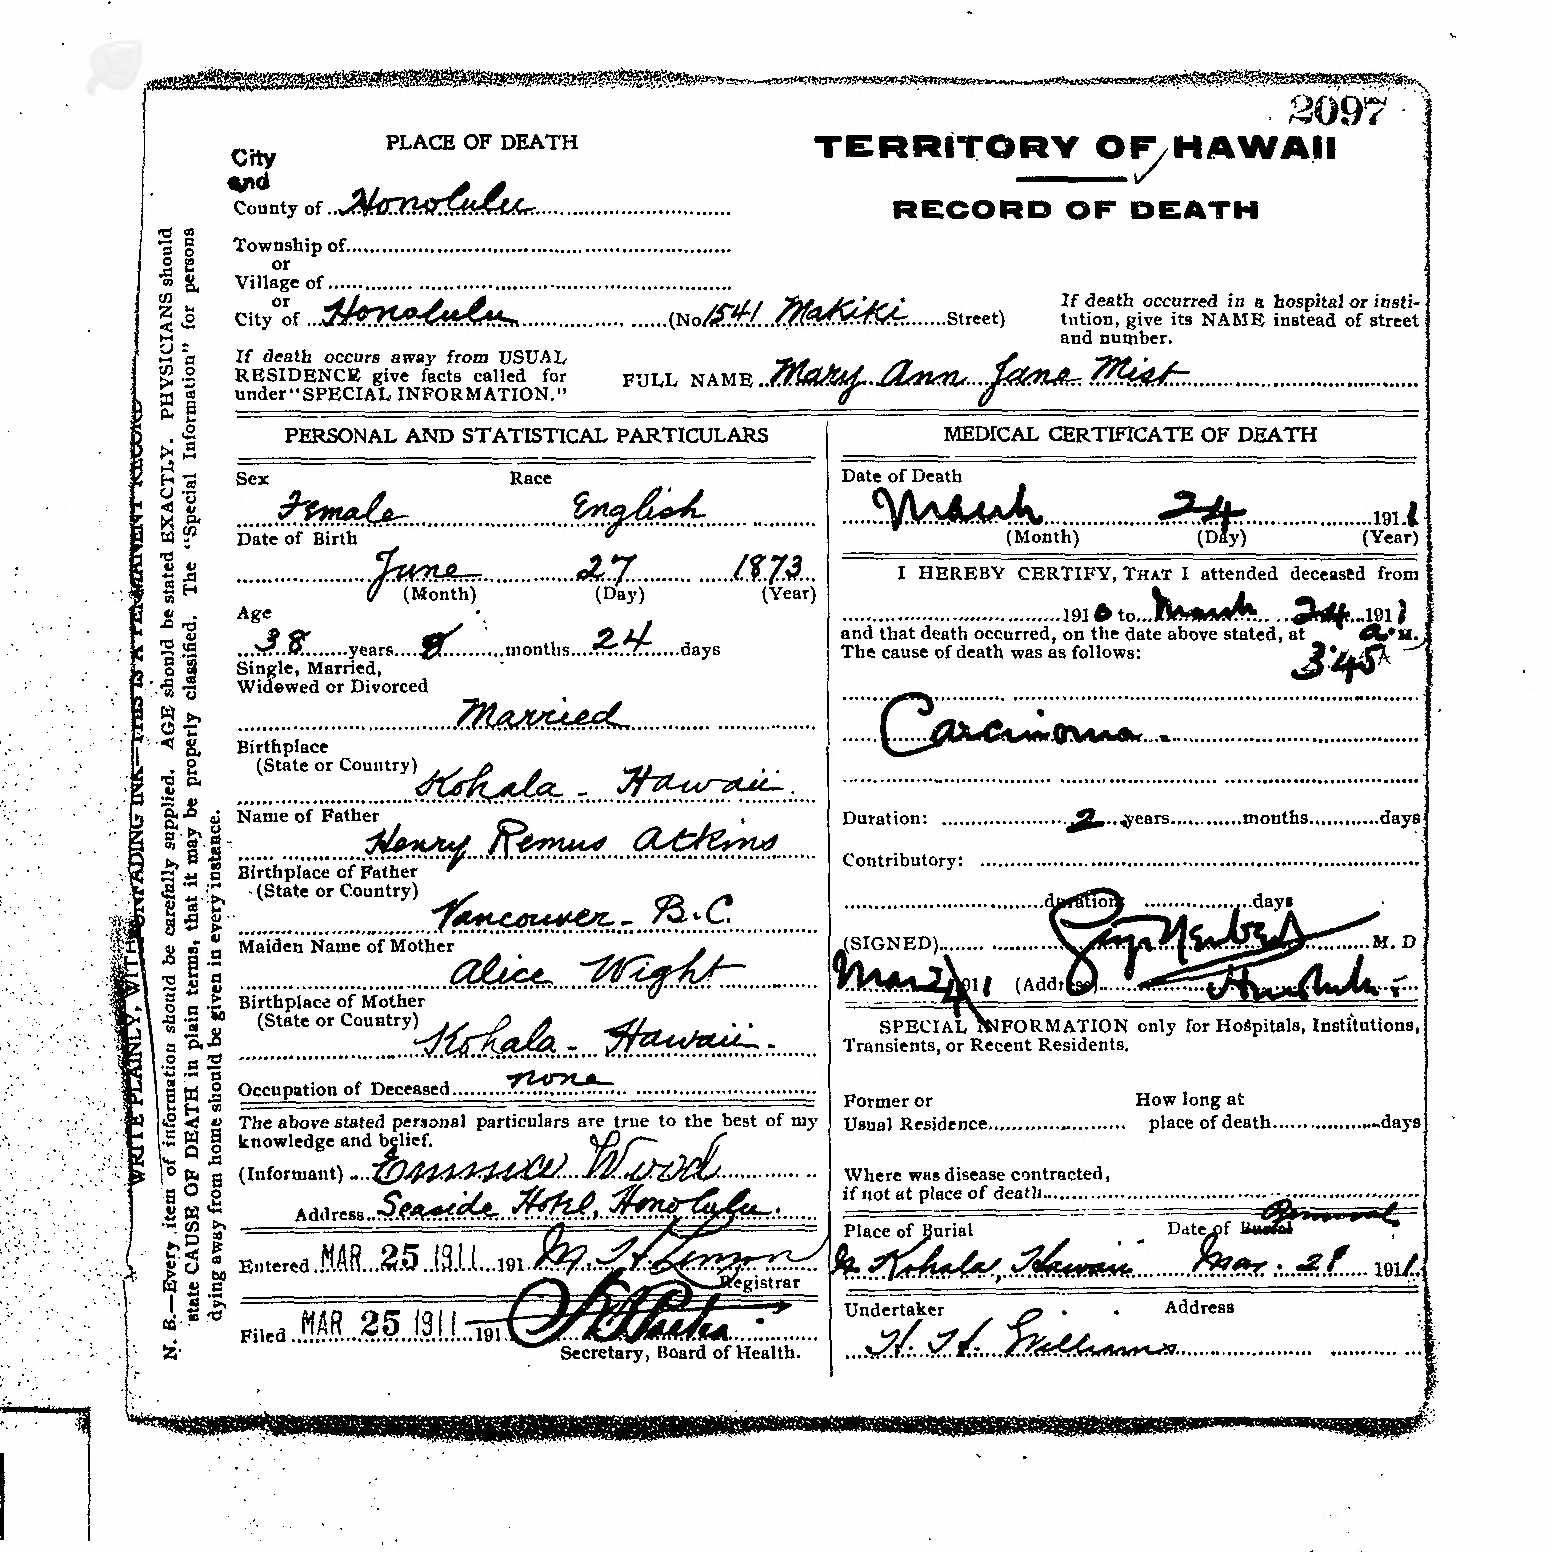 2097
PLACE OF DEATH
City
and
County of Honolulu
Township of
or
Village of
or
City of Honolulu (No 1541 Makiki Street)
If death occurs away from USUAL
RESIDENCE give facts called for
under "SPECIAL INFORMATION."
TERRITORY OF HAWAII
RECORD OF DEATH
If death occurred in a hospital or insti-
tution, give its NAME instead of street
and number.
FULL NAME Mary Ann Jane Mist
PERSONAL AND STATISTICAL PARTICULARS
Sex Race
Female English
Date of Birth
June 27 1873
(Month) (Day) (Year)
Age
38 years 8 months 24 days
Single, Married,
Widowed or Divorced
Married
Birthplace
(State or Country)
Kohala - Hawaii.
Name of Father
Henry Remus Atkins
Birthplace of Father
(State or Country)
Vancouver - B.C.
Maiden Name of Mother
Alice Wight
Birthplace of Mother
(State or Country)
Kohala - Hawaii.
Occupation of Deceased none
The above stated personal particulars are true to the best of my
knowledge and belief.
(Informant) Wood
Address Seaside Hotel, Honolulu.
Entered MAR 25 1911 191 M. H. Lemon
Registrar
Filed MAR 25 1911 191
Secretary, Board of Health.
MEDICAL CERTIFICATE OF DEATH
Date of Death
March 24 1911
(Month) (Day) (Year)
I HEREBY CERTIFY, THAT I attended deceased from
1910 to March 24 1911
and that death occurred, on the date above stated, at a.M.
The cause of death was as follows: 3:45 A
Carcinoma.
Duration: 2 years months days
Contributory:
duration days
(SIGNED) M. D
Mar 24 1911 (Address) Honolulu.
SPECIAL INFORMATION only for Hospitals, Institutions,
Transients, or Recent Residents.
Former or How long at
Usual Residence place of death days
Where was disease contracted,
if not at place of death
Removal
Place of Burial Date of Burial
N. Kohala, Hawaii Mar. 28 1911.
Undertaker Address
H. H. Williams
WRITE PLAINLY, WITH UNFADING INK—THIS IS A PERMANENT RECORD
N. B.—Every item of information should be carefully supplied. AGE should be stated EXACTLY. PHYSICIANS should
state CAUSE OF DEATH in plain terms, that it may be properly classified. The "Special Information" for persons
dying away from home should be given in every instance.